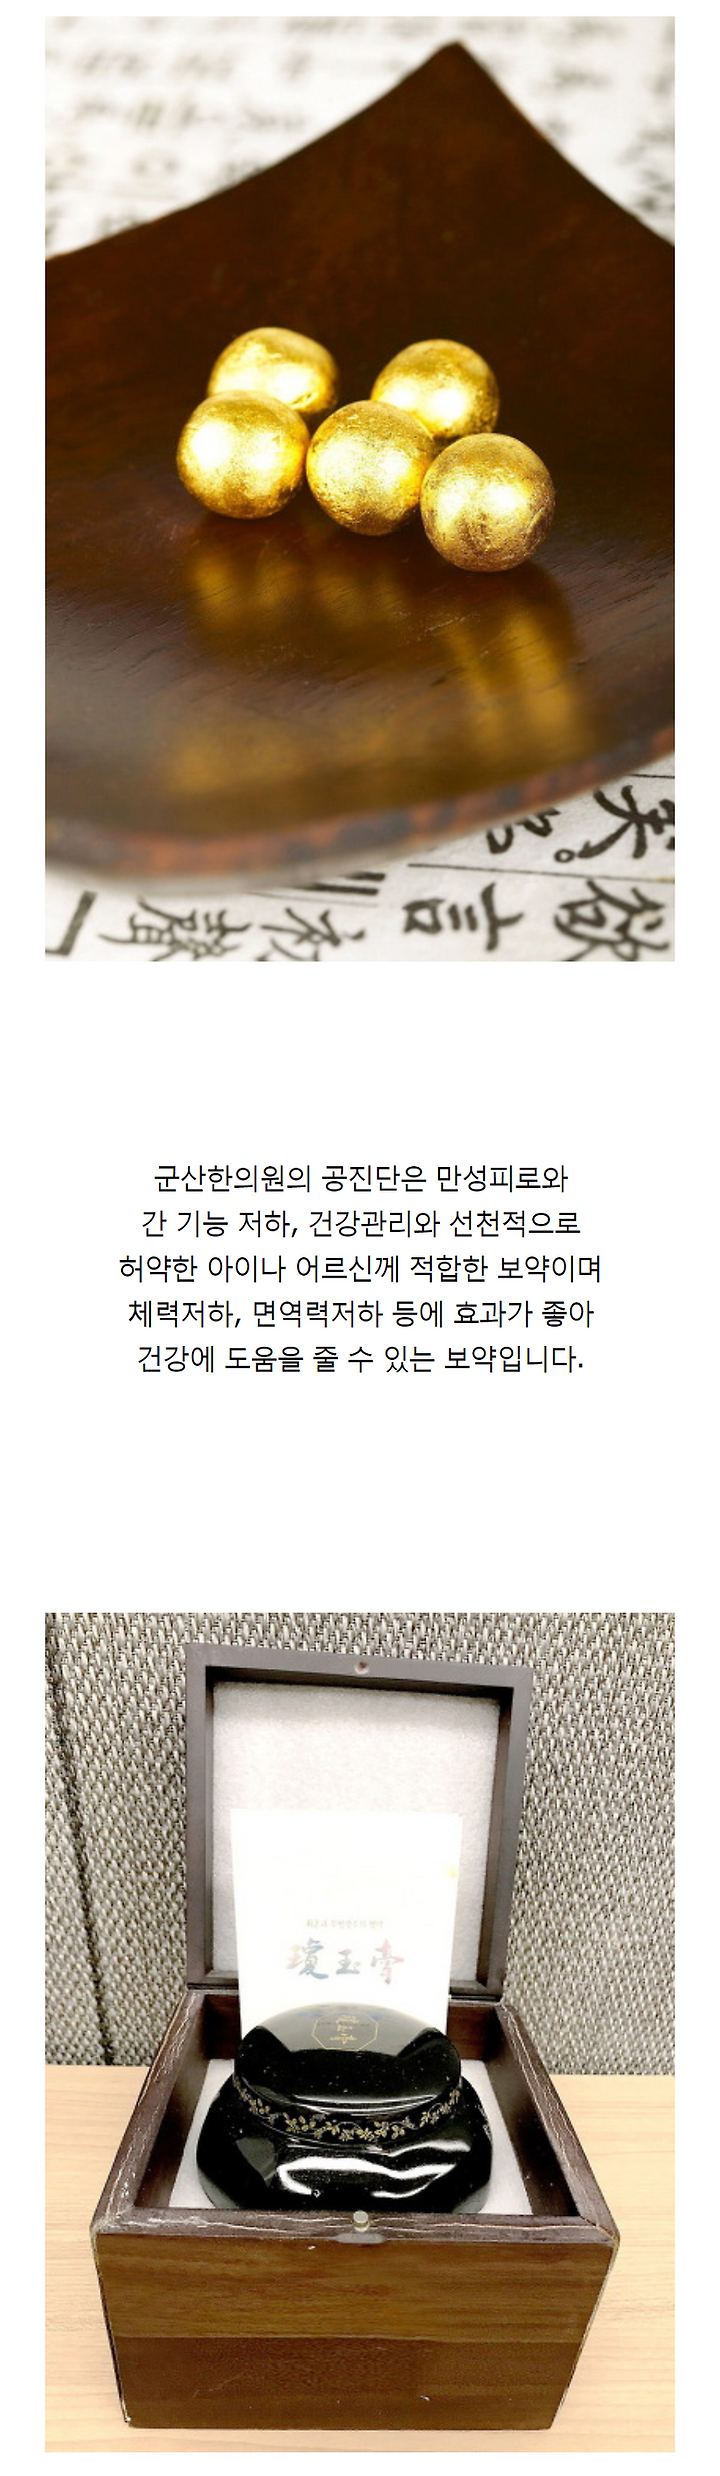 군산한의원의 공진단은 만성피로와
간 기능 저하, 건강관리와 선천적으로
허약한 아이나 어르신께 적합한 보약이며
체력저하, 면역력저하 등에 효과가 좋아
건강에 도움을 줄 수 있는 보약입니다.
瓊玉膏